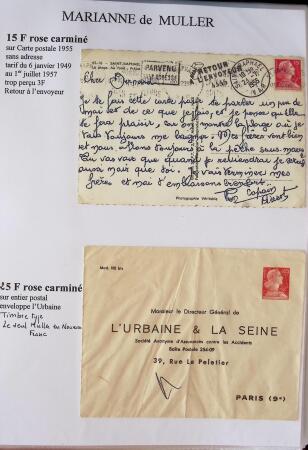 MARIANNE de MULLER
15 F rose carminé
sur Carte postale 1955
sans adresse
tarif du 6 janvier 1949
au 1er juillet 1957
trop perçu 3F
Retour à l'envoyeur
PARVENU
SANS ADRESSE
RETOUR
A L'ENVOYEUR
Cher
Je te fais cette carte pour te parler un peu de
moi et de ce que je fais, et je pense qu'elle
te fera plaisir. Au bon matin la plage où je
vais toujours me baigner. Mes frères vont bien
et nous allons toujours à la pêche sous-marine
Tu vas voir que quand je reviendrai je serai
aussi noir que toi. Je vais terminer mes
frères et moi t'embrassons
Ton Copain
Photographie Véritable
25 F rose carminé
sur entier postal
enveloppe l'Urbaine
Timbre type
Le seul Muller en Nouveau
Franc
Monsieur le Directeur Général de
L'URBAINE & LA SEINE
Société Anonyme d'Assurances contre les Accidents
Boîte Postale 254-09
39, Rue Le Peletier
PARIS (9e)